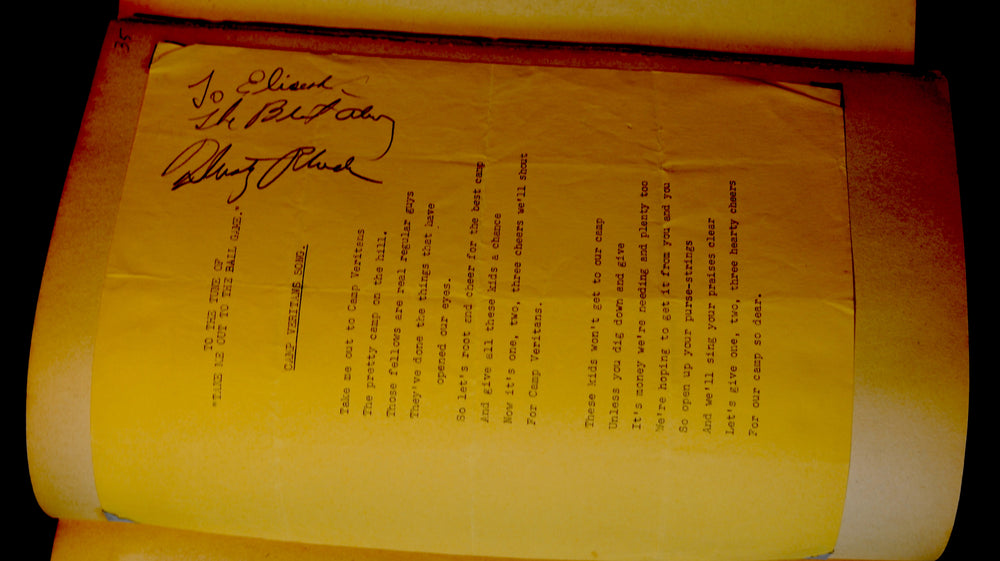 35
To
The Best
Dusty
TO THE TUNE OF
"TAKE ME OUT TO THE BALL GAME."
CAMP VERITANS SONG.
Take me out to Camp Veritans
The pretty camp on the hill.
Those fellows are real regular guys
They've done the things that have
opened our eyes.
So let's root and cheer for the best camp
And give all these kids a chance
Now it's one, two, three cheers we'll shout
For Camp Veritans.
These kids won't get to our camp
Unless you dig down and give
It's money we're needing and plenty too
We're hoping to get it from you and you
So open up your purse-strings
And we'll sing your praises clear
Let's give one, two, three hearty cheers
For our camp so dear.